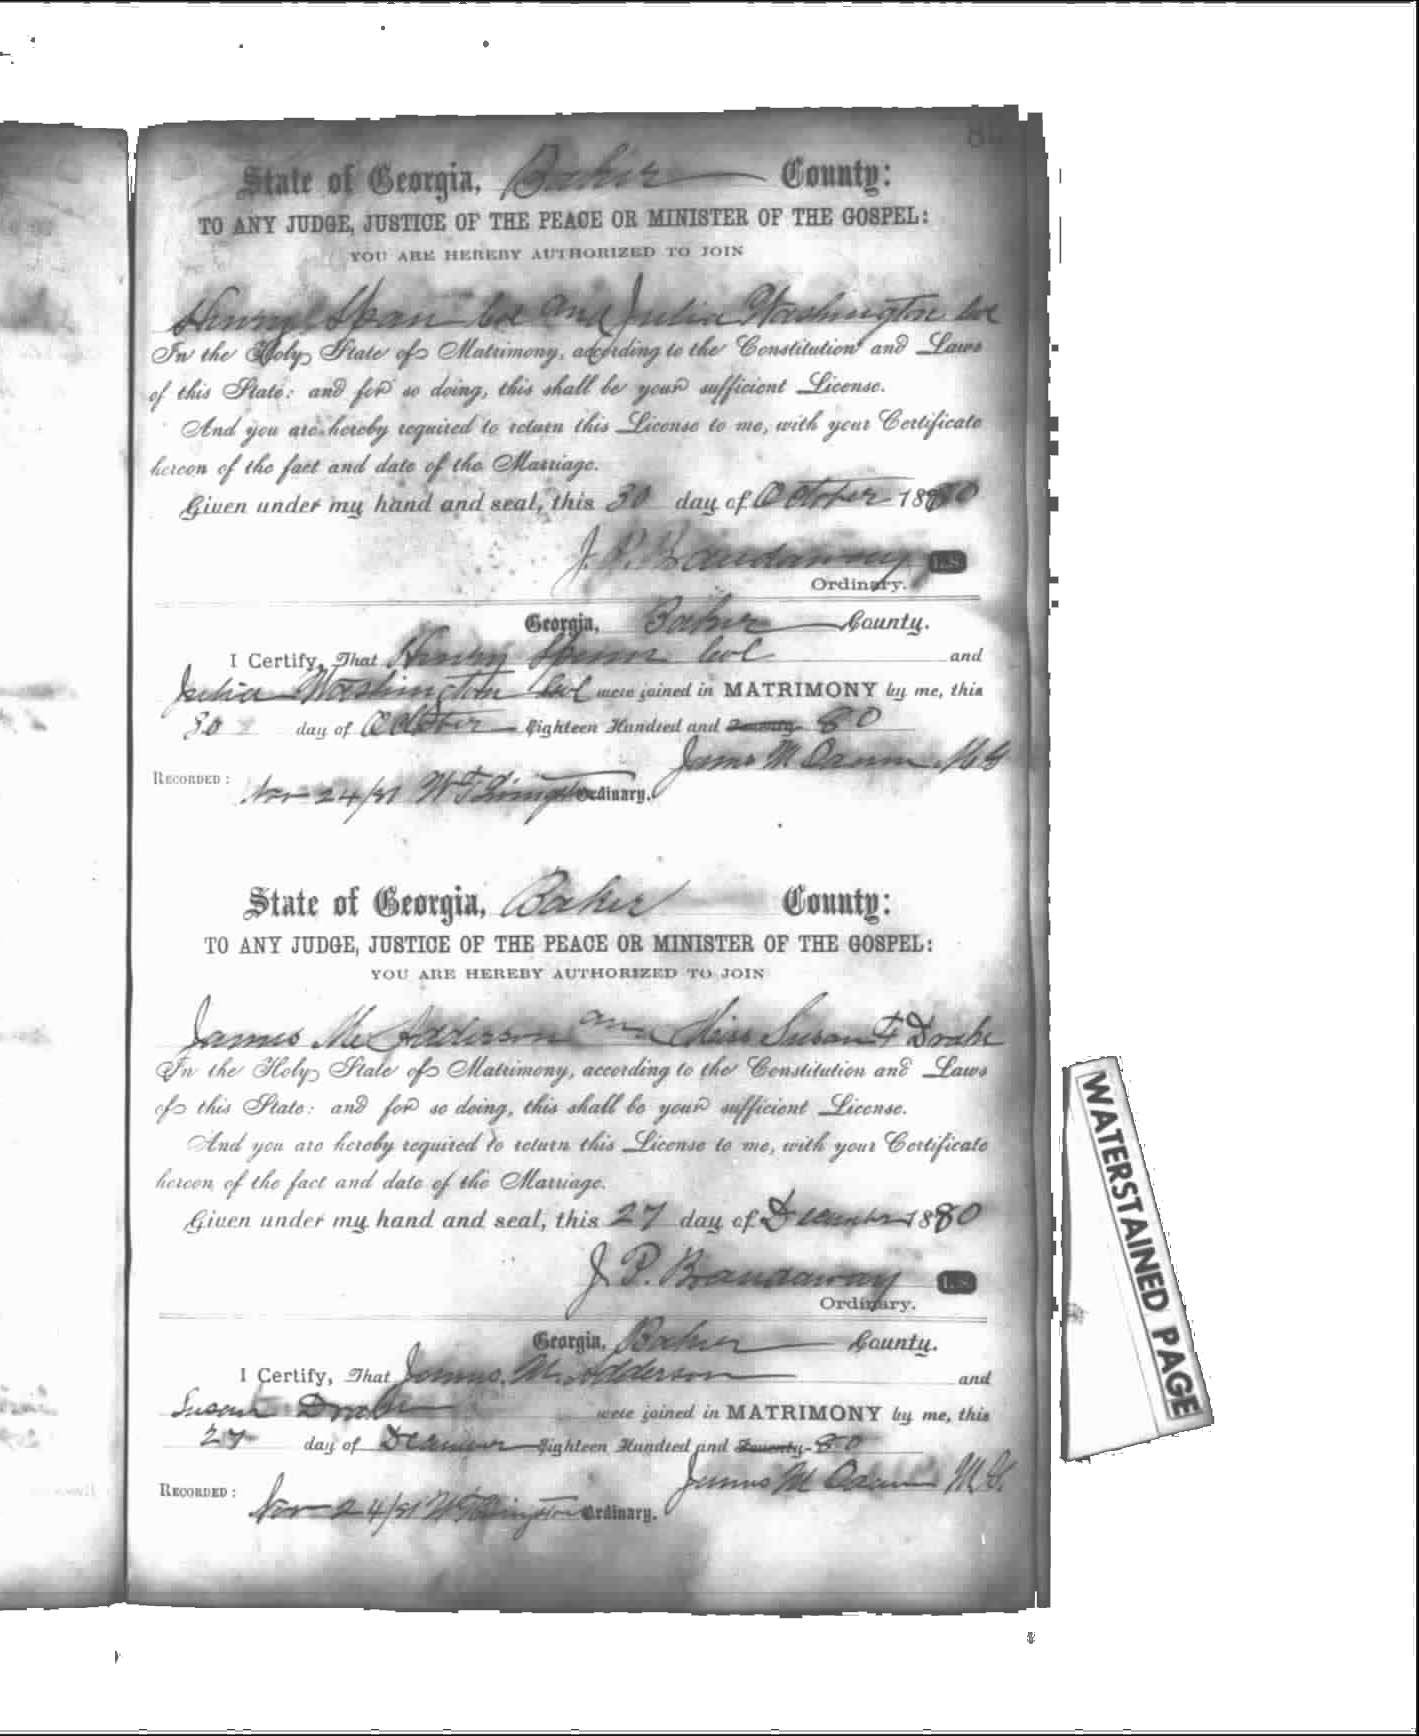 State of Georgia, Baker County:
TO ANY JUDGE, JUSTICE OF THE PEACE OR MINISTER OF THE GOSPEL:
YOU ARE HEREBY AUTHORIZED TO JOIN
Henry Span Col and Julia Washington Col
In the Holy State of Matrimony, according to the Constitution and Laws
of this State: and for so doing, this shall be your sufficient License.
And you are hereby required to return this License to me, with your Certificate
hereon of the fact and date of the Marriage.
Given under my hand and seal, this 30 day of October 1880
J. P. Brandaway L.S.
Ordinary.
Georgia, Baker County.
I Certify, That Henry Col and
Julia Washington Col were joined in MATRIMONY by me, this
30 day of October Eighteen Hundred and Seventy 80
James M M G
RECORDED: Nov 24/81 W T Ordinary.
State of Georgia, Baker County:
TO ANY JUDGE, JUSTICE OF THE PEACE OR MINISTER OF THE GOSPEL:
YOU ARE HEREBY AUTHORIZED TO JOIN
James M Adderson and Miss Susan F Drake
In the Holy State of Matrimony, according to the Constitution and Laws
of this State: and for so doing, this shall be your sufficient License.
And you are hereby required to return this License to me, with your Certificate
hereon of the fact and date of the Marriage.
Given under my hand and seal, this 27 day of December 1880
J. P. Brandaway L.S.
Ordinary.
Georgia, Baker County.
I Certify, That James M. Adderson and
Susan Drake were joined in MATRIMONY by me, this
27 day of December Eighteen Hundred and Seventy 80
James M M.G.
RECORDED: Nov 24/81 W T Ordinary.
WATERSTAINED PAGE